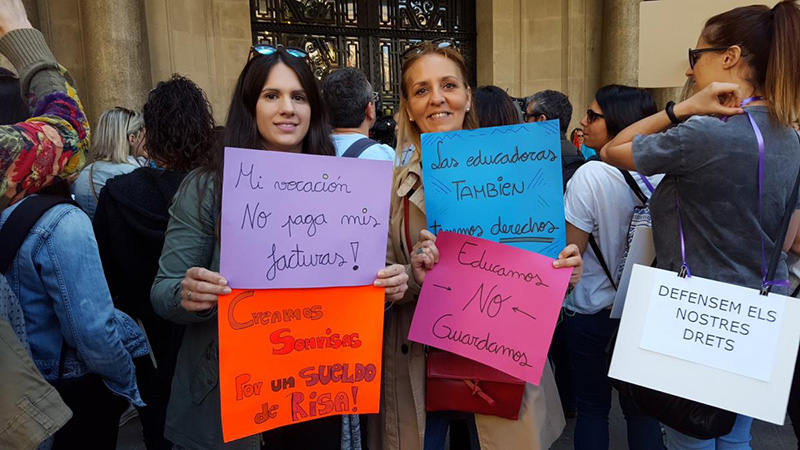 Mi vocación
No paga mis
facturas!
Creamos
Sonrisas
Por um sueldo
de Risa!
Las educadoras
TAMBIEN
tenemos derechos
Educamos
→ No ←
Guardamos
DEFENSEM ELS
NOSTRES
DRETS